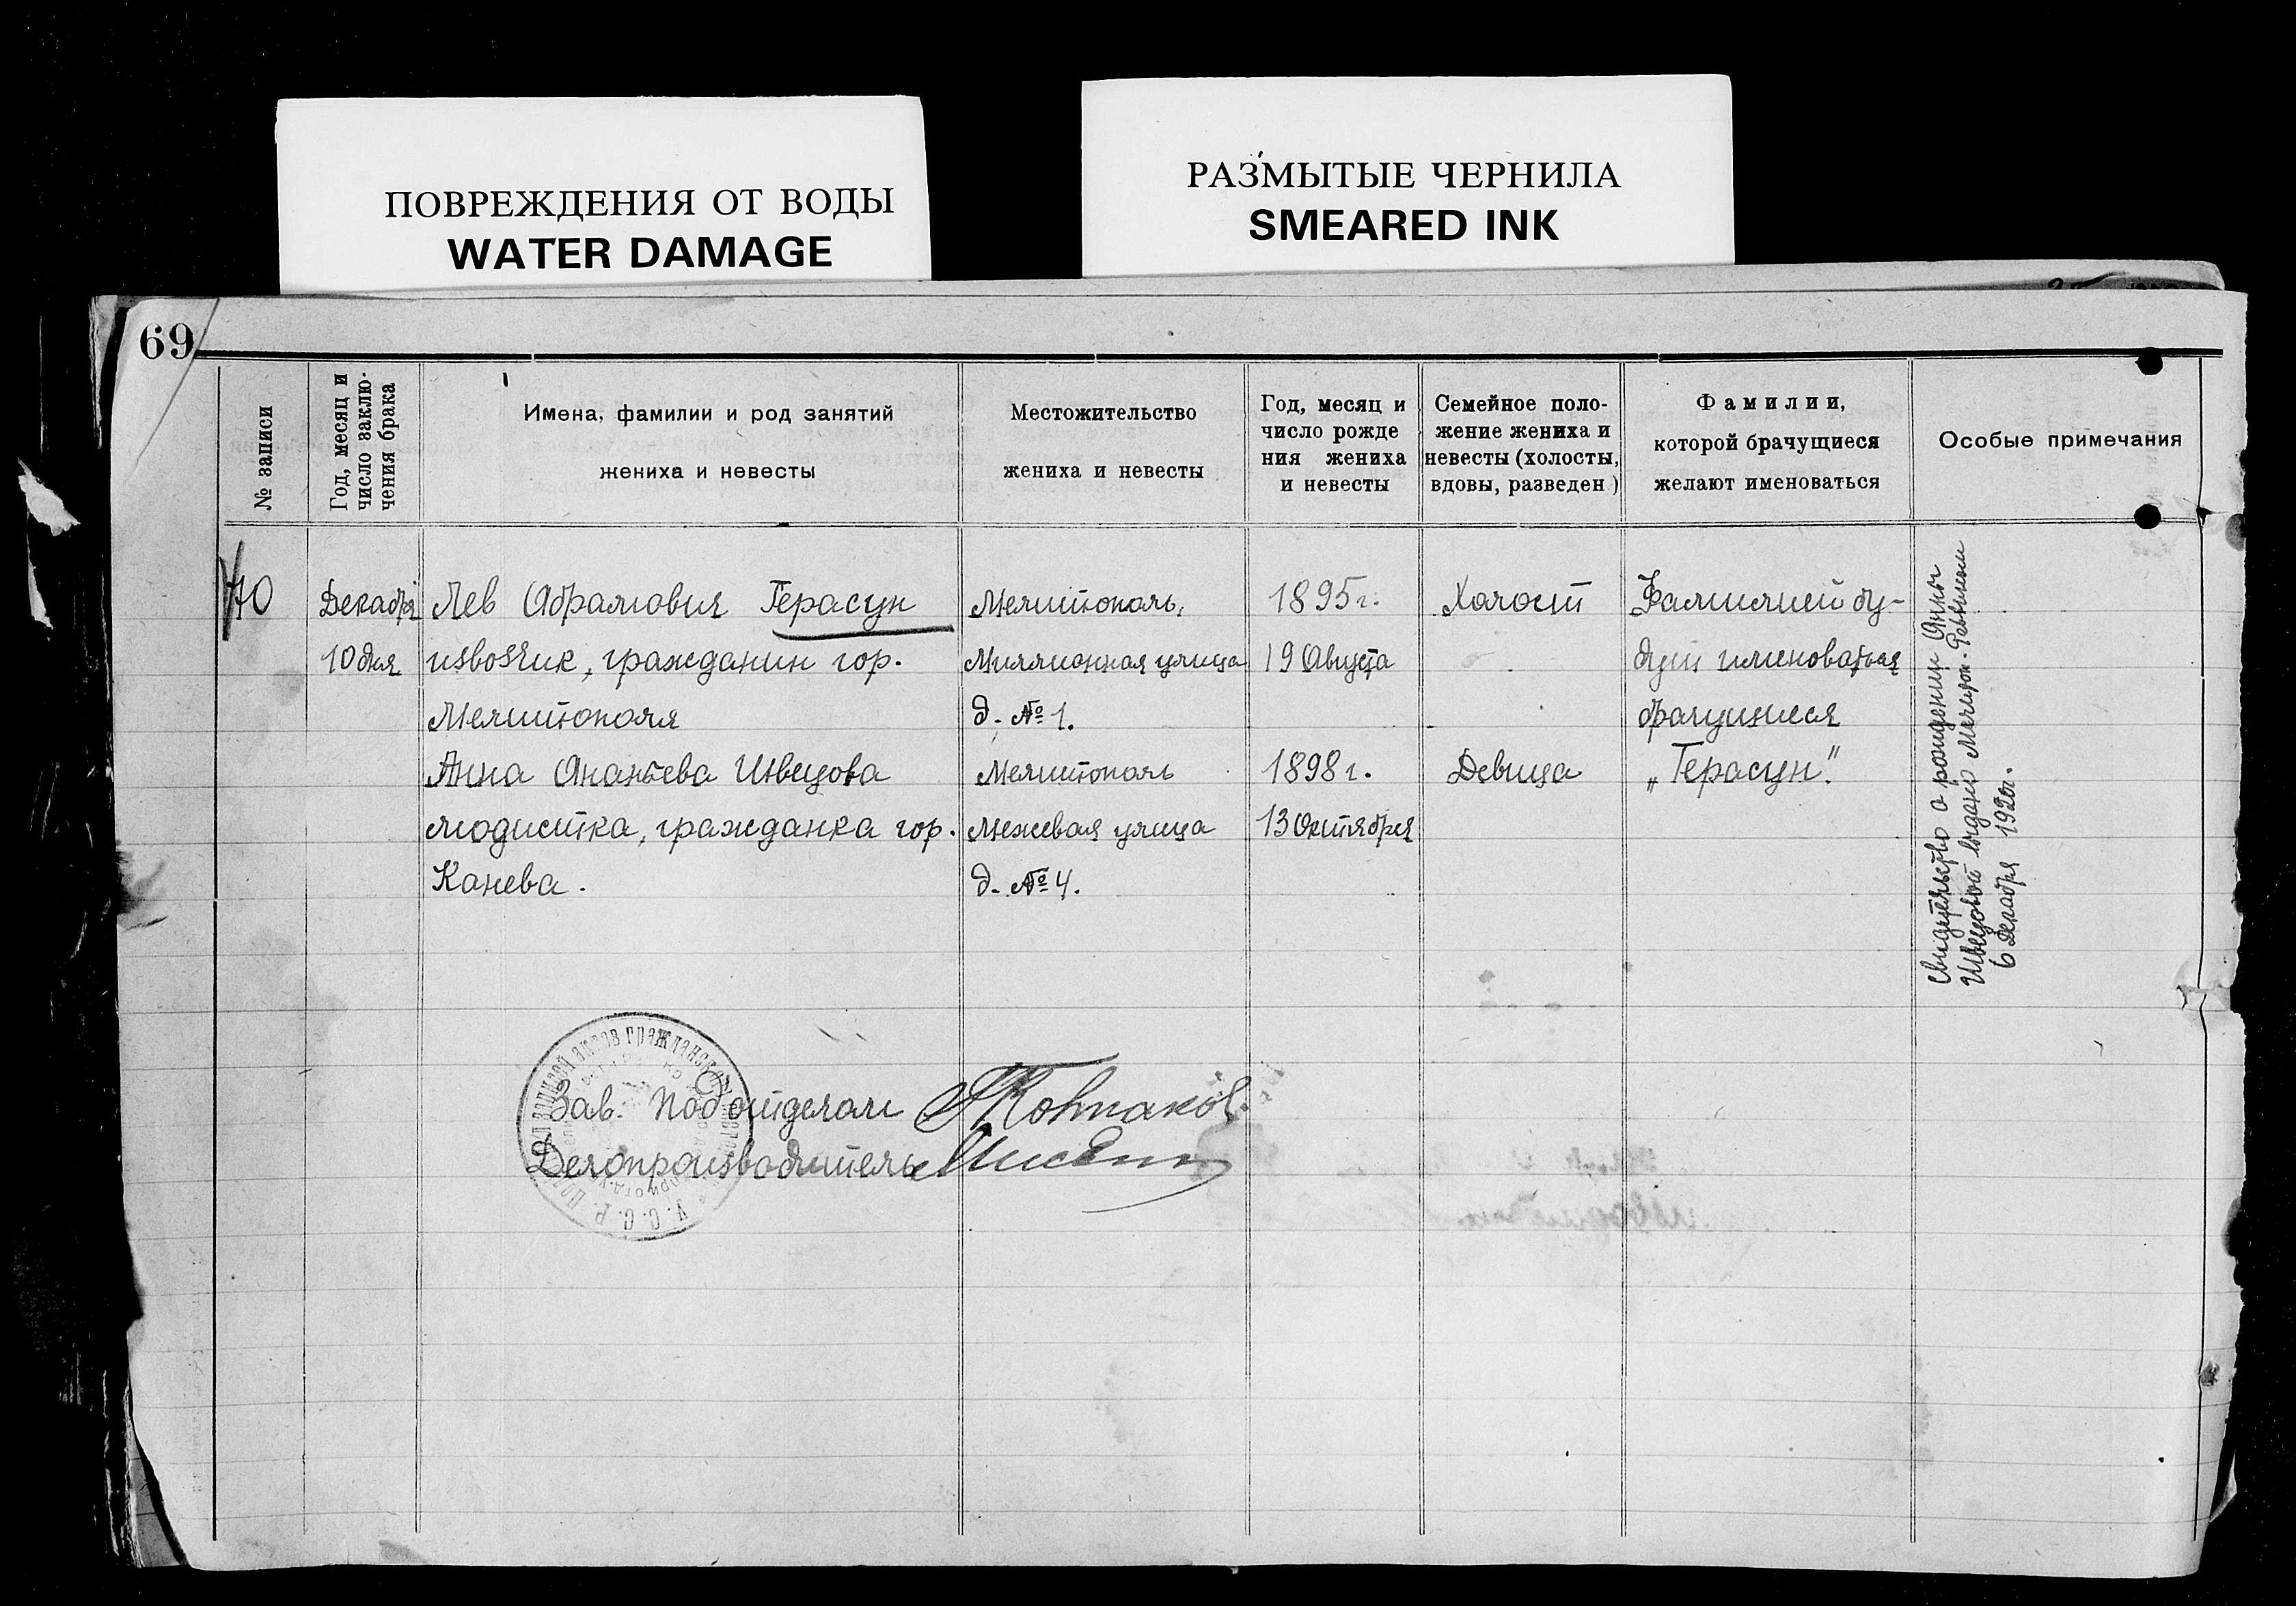 ПОВРЕЖДЕНИЯ ОТ ВОДЫ
WATER DAMAGE
РАЗМЫТЫЕ ЧЕРНИЛА
SMEARED INK
69
№ записи
Год, месяц и
число заклю-
чения брака
Имена, фамилии и род занятий
жениха и невесты
Местожительство
жениха и невесты
Год, месяц и
число рожде
ния жениха
и невесты
Семейное поло-
жение жениха и
невесты (холосты,
вдовы, разведен)
Фамилии,
которой брачущиеся
желают именоваться
Особые примечания
70
Декабря
10 дня
Лев Абрамович Герасун
извозчик, гражданин гор.
Мелитополя
Анна Ананьева Швецова
модистка, гражданка гор.
Канева.
Мелитополь,
Миллионная улица
д. № 1.
Мелитополь
Межевая улица
д. № 4.
1895 г.
19 Августа
1898 г.
13 Октября
Холост
Девица
Фамилией бу-
дут именоваться
брачущиеся
„Герасун".
Свидетельство о рождении Анны
Швецовой выдано Мелитоп. Раввином
6 Декабря 1920 г.
Зав. Подотделом
Делопроизводитель
У. С. С. Р.